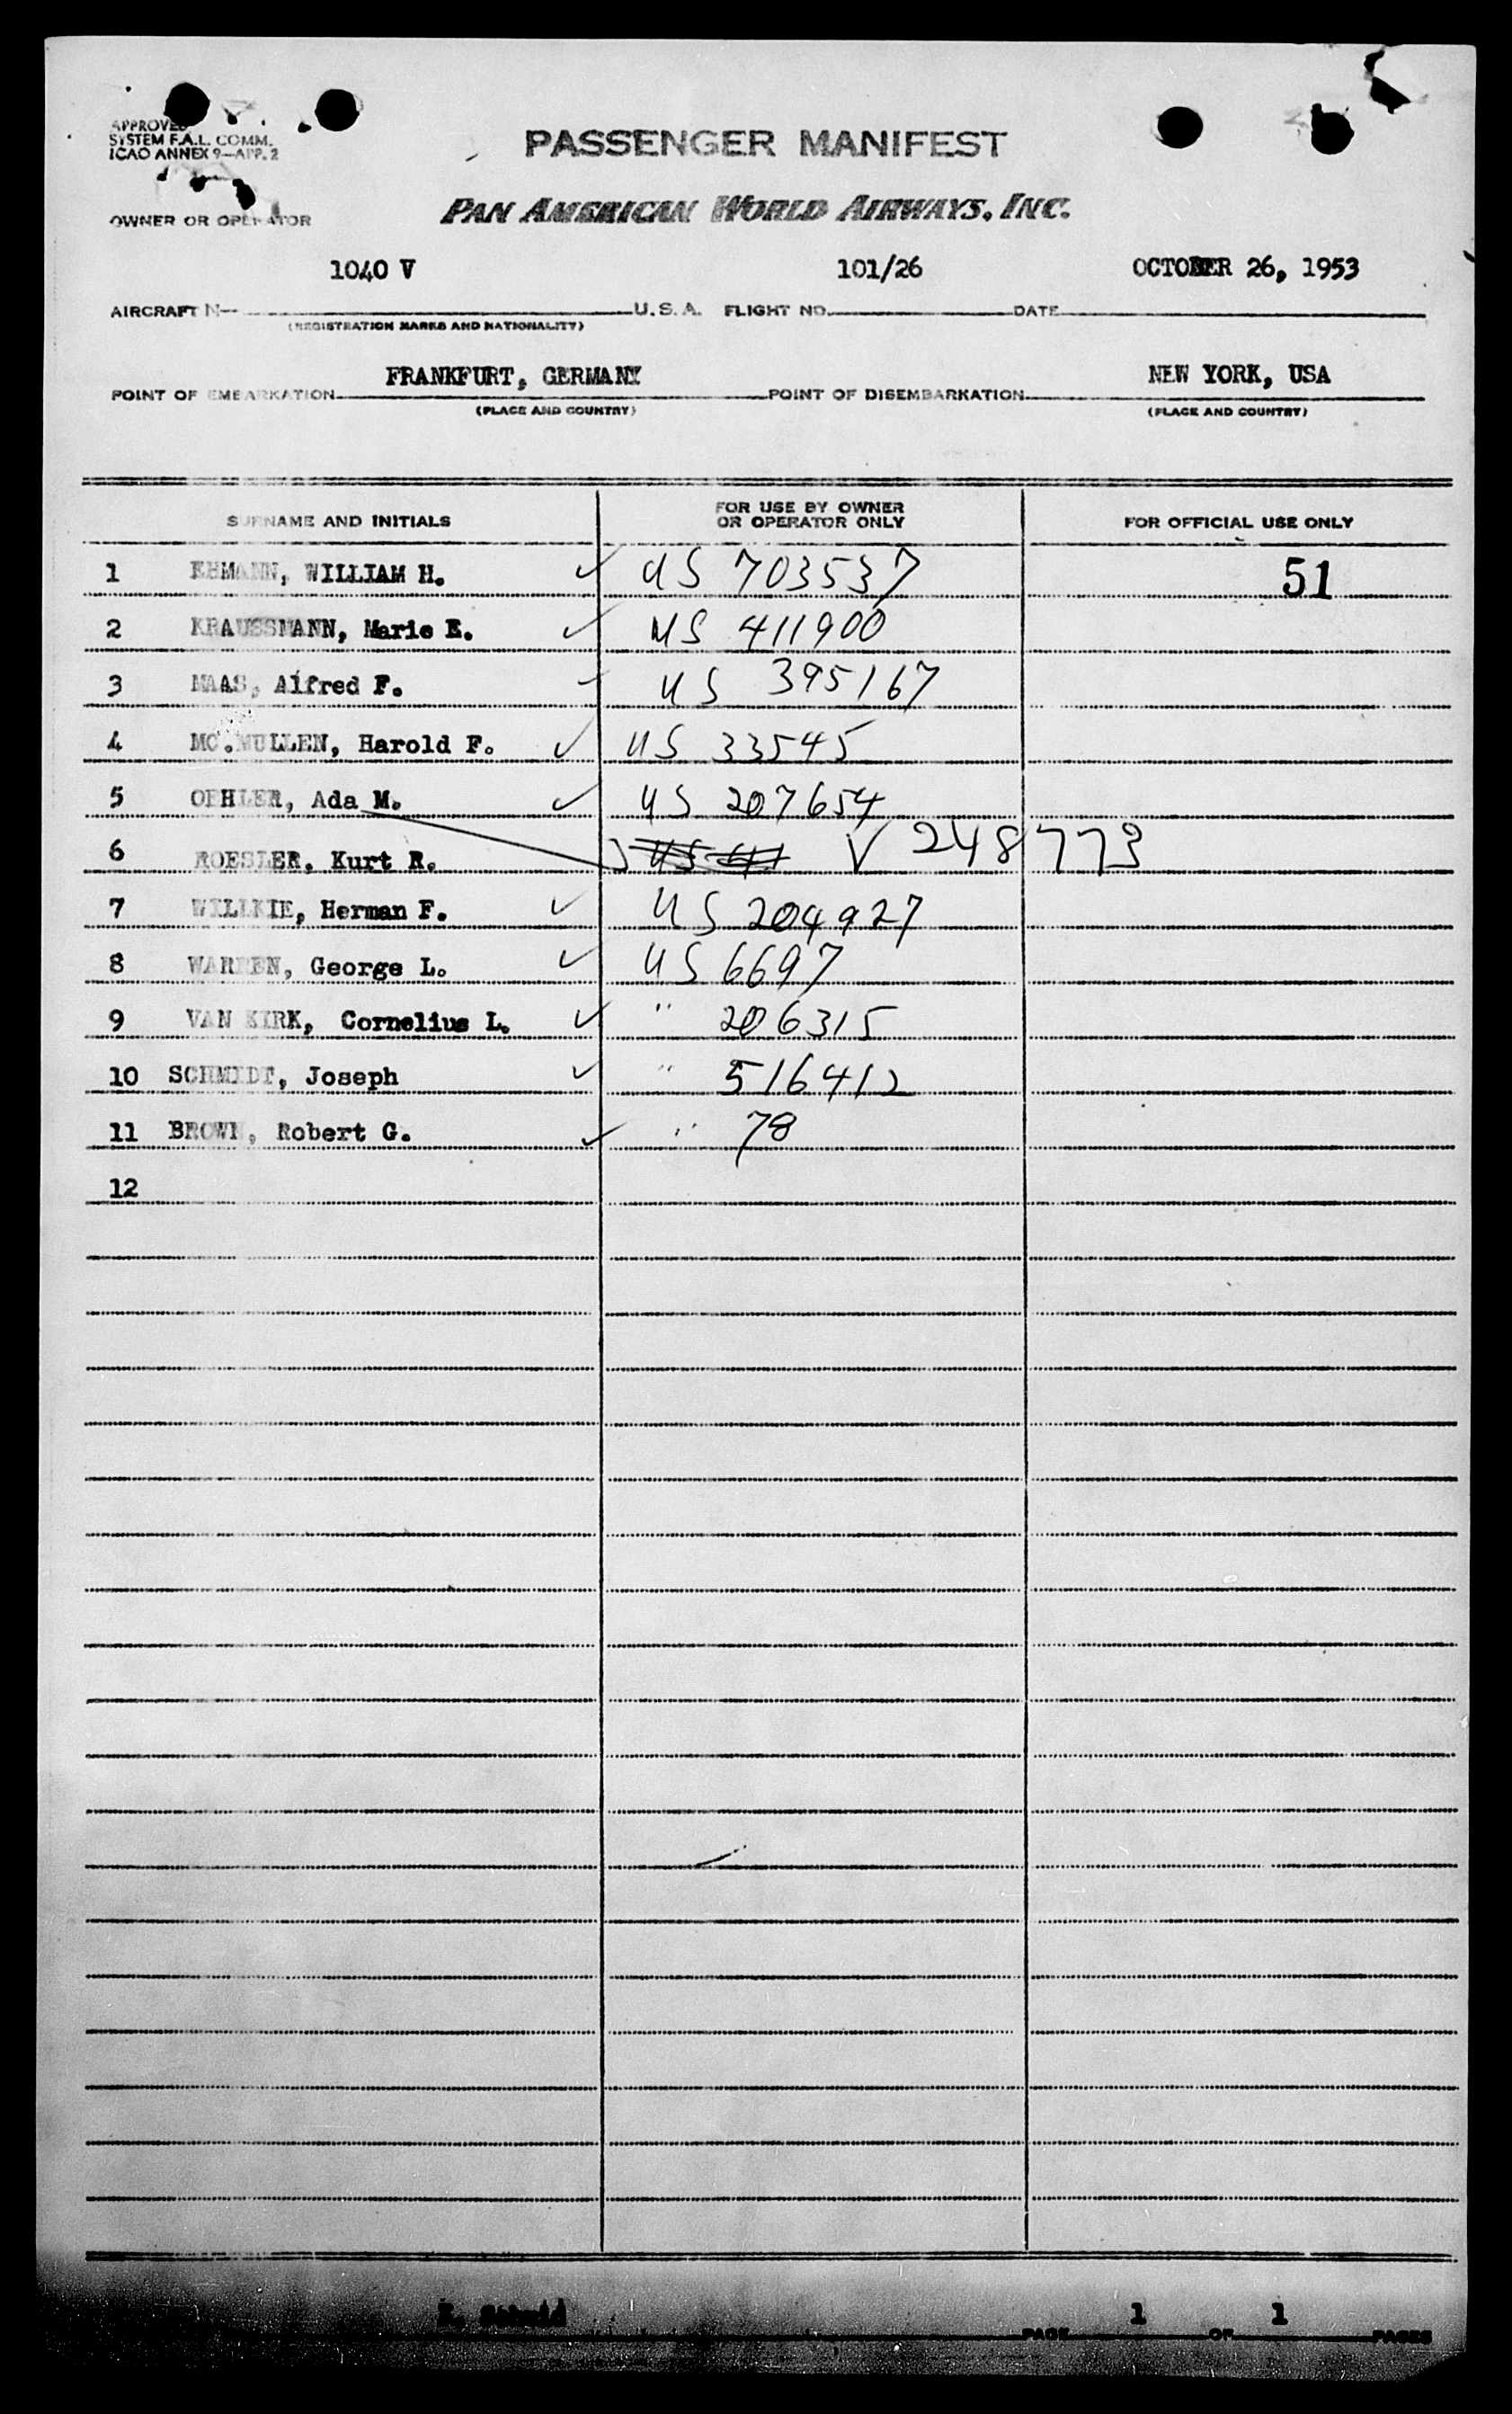 APPROVED
SYSTEM F.A.L. COMM.
ICAO ANNEX 9—APP. 2
PASSENGER MANIFEST
OWNER OR OPERATOR PAN AMERICAN WORLD AIRWAYS, INC.
1040 V 101/26 OCTOBER 26, 1953
AIRCRAFT N— U.S.A. FLIGHT NO. DATE
(REGISTRATION MARKS AND NATIONALITY)
FRANKFURT, GERMANY NEW YORK, USA
POINT OF EMBARKATION POINT OF DISEMBARKATION
(PLACE AND COUNTRY) (PLACE AND COUNTRY)
SURNAME AND INITIALS FOR USE BY OWNER OR OPERATOR ONLY FOR OFFICIAL USE ONLY
1 EHMANN, WILLIAM H. ✓ US 703537 51
2 KRAUSSMANN, Marie E. ✓ US 411900
3 MAAS, Alfred F. ✓ US 395167
4 MC.MULLEN, Harold F. ✓ US 33545
5 OEHLER, Ada M. ✓ US 207654
6 ROESLER, Kurt R. V 248773
7 WILLKIE, Herman F. ✓ US 204927
8 WARREN, George L. ✓ US 6697
9 VAN KIRK, Cornelius L. ✓ " 206315
10 SCHMIDT, Joseph ✓ " 516412
11 BROWN, Robert G. ✓ " 78
12
PAGE 1 OF 1 PAGES